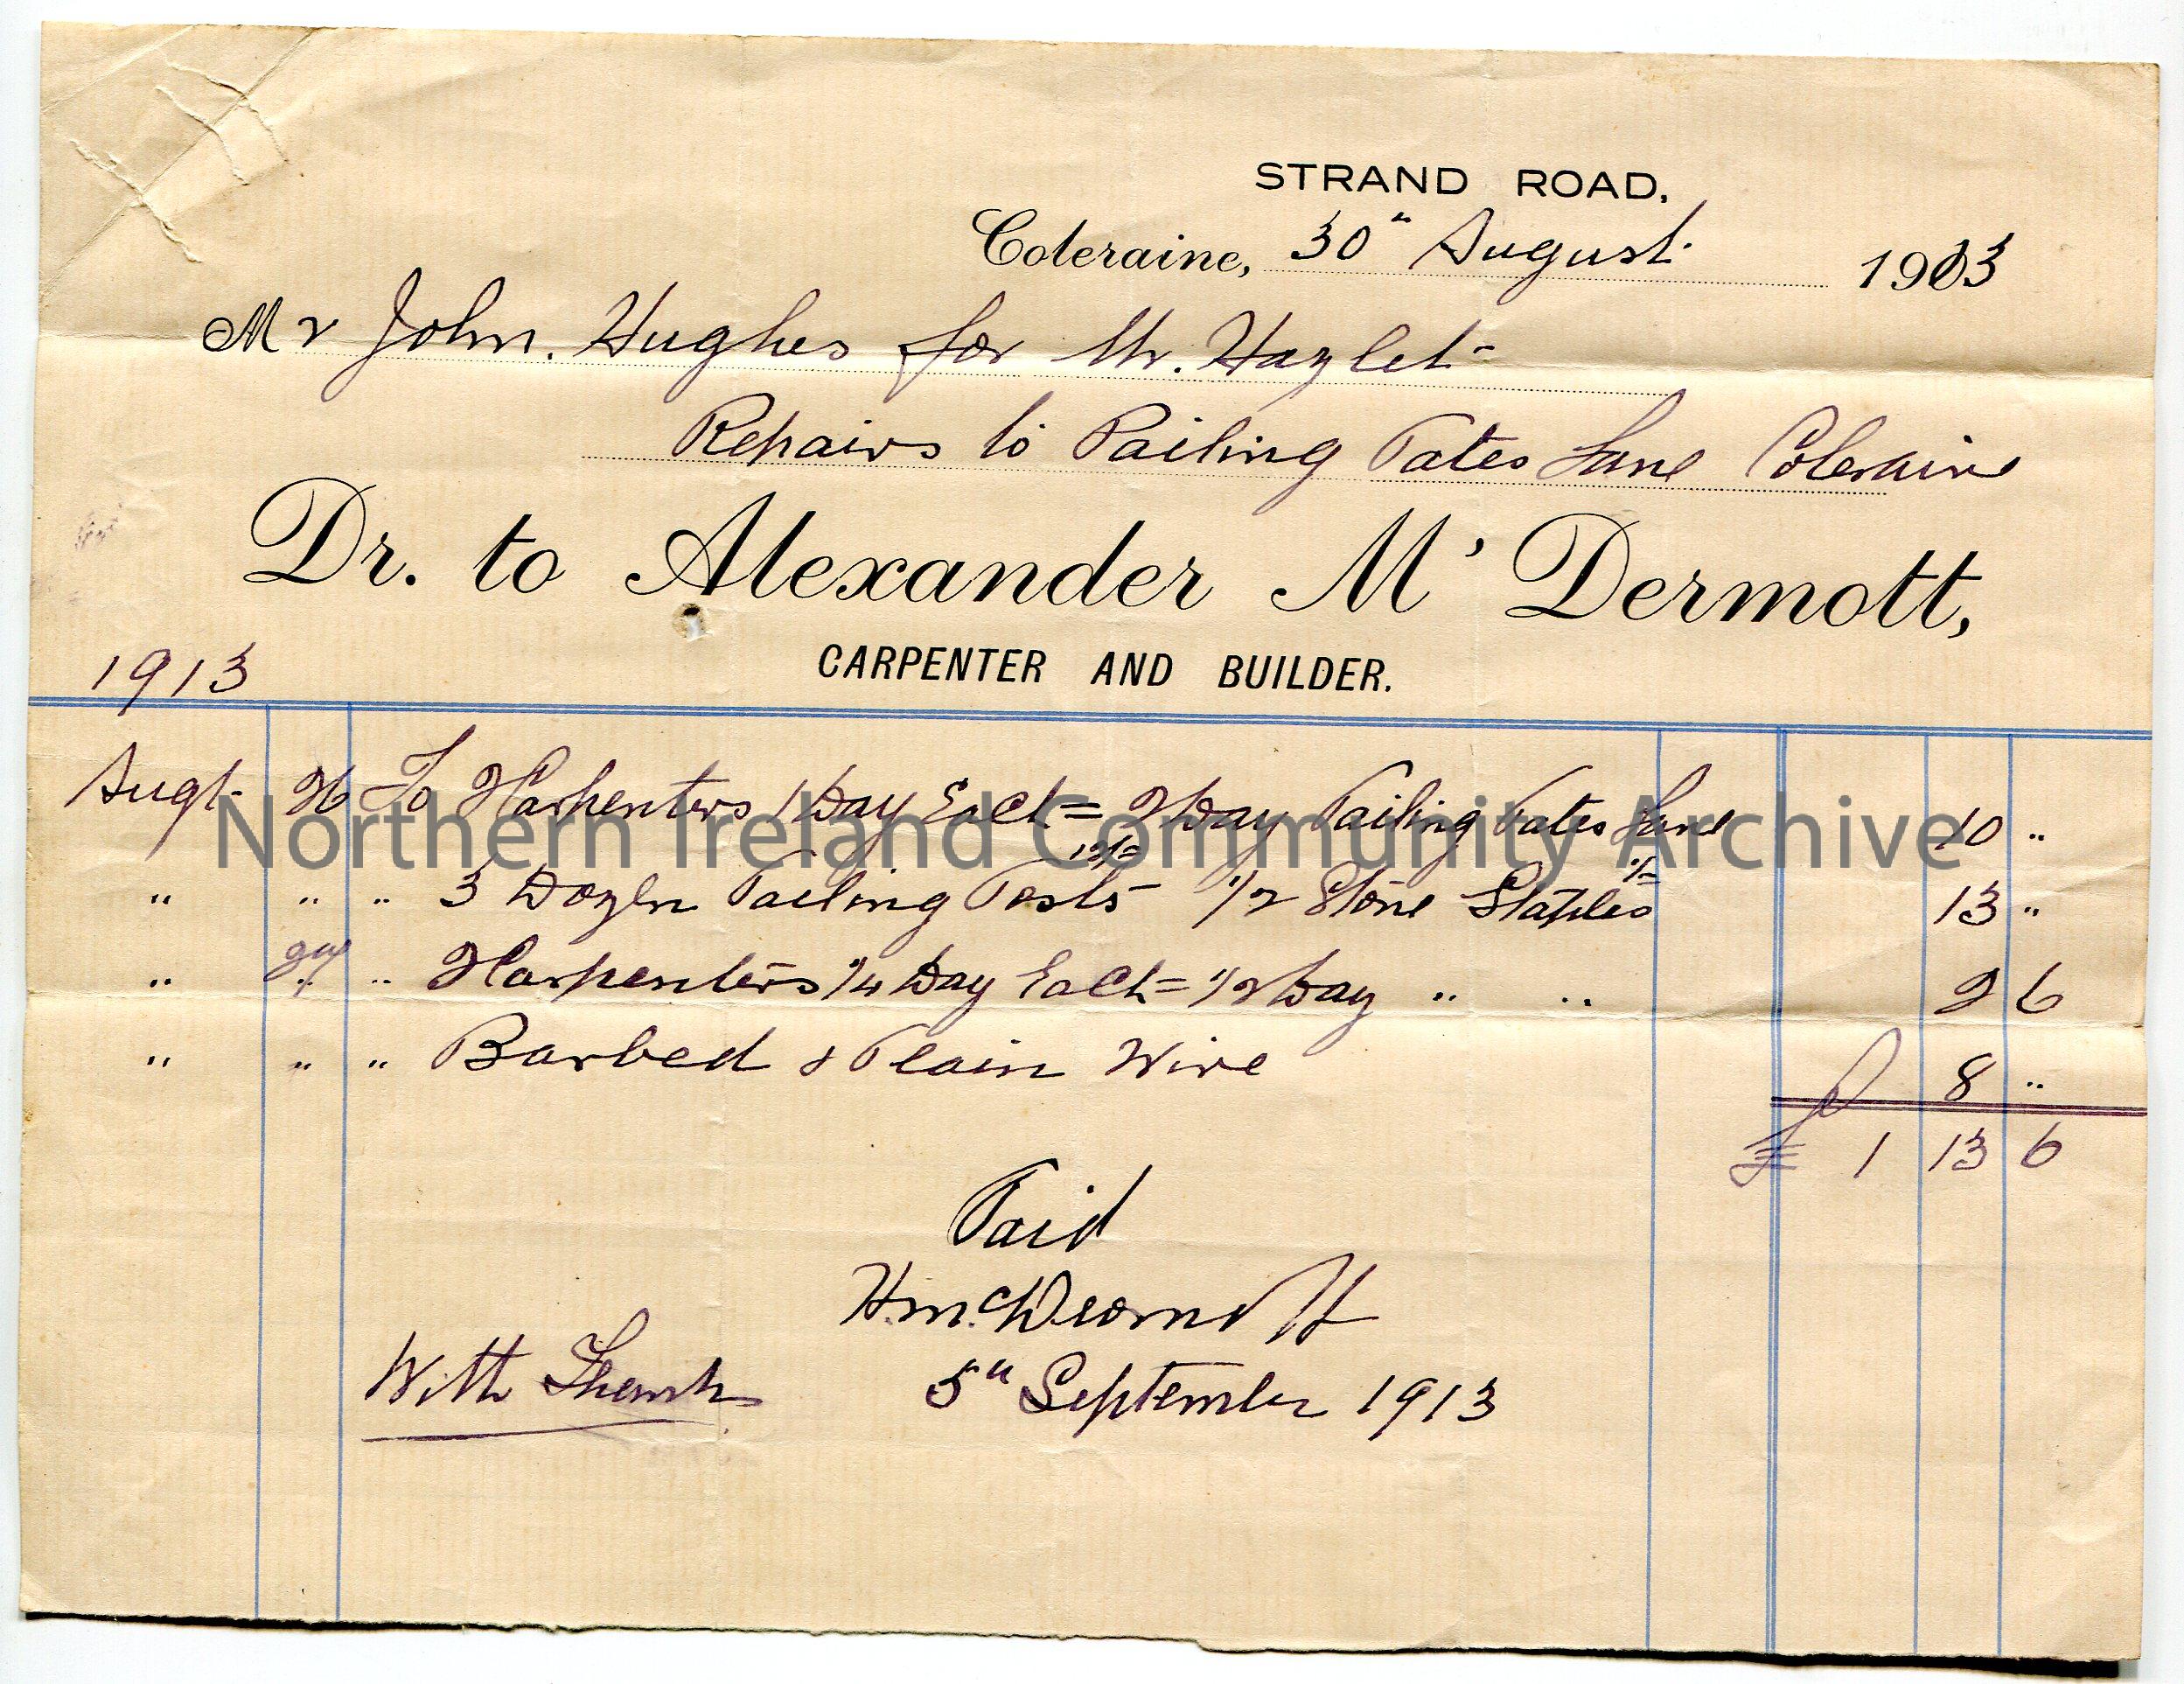 STRAND ROAD,
Coleraine, 30" August 1913
Mr John. Hughes for Mr. Hazlet
Repairs to Pailing Pates Lane Coleraine
Dr. to Alexander M'Dermott,
CARPENTER AND BUILDER.
1913
Augt 26 To 2 Carpenters 1 Day Each = 2 Day Pailing Pates Lane 10 "
" " " 3 Dozen Pailing Posts 12/= 1/2 Stone Staples 1/= 13 "
" 27 " 2 Carpenters 1/4 Day Each = 1/2 Day " " 2 6
" " " Barbed & Plain Wire 8 "
£ 1 13 6
Paid
H. McDermott
With Thanks
5th September 1913
Northern Ireland Community Archive